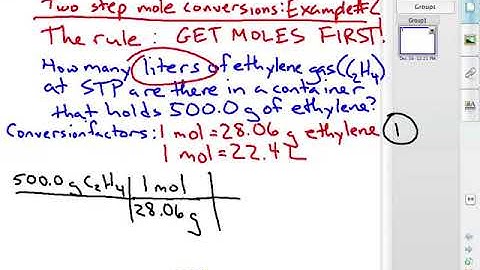 Two step mole conversions: Example #2
The rule: GET MOLES FIRST!
How many liters of ethylene gas (C₂H₄)
at STP are there in a container
that holds 500.0 g of ethylene?
Conversion factors: 1 mol = 28.06 g ethylene 1
1 mol = 22.4 L
500.0 g C₂H₄ 1 mol
28.06 g
Groups
Group1